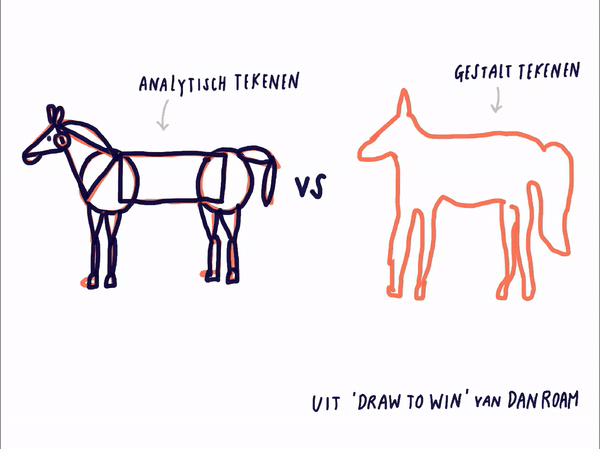 ANALYTISCH TEKENEN
GESTALT TEKENEN
VS
UIT 'DRAW TO WIN' VAN DAN ROAM